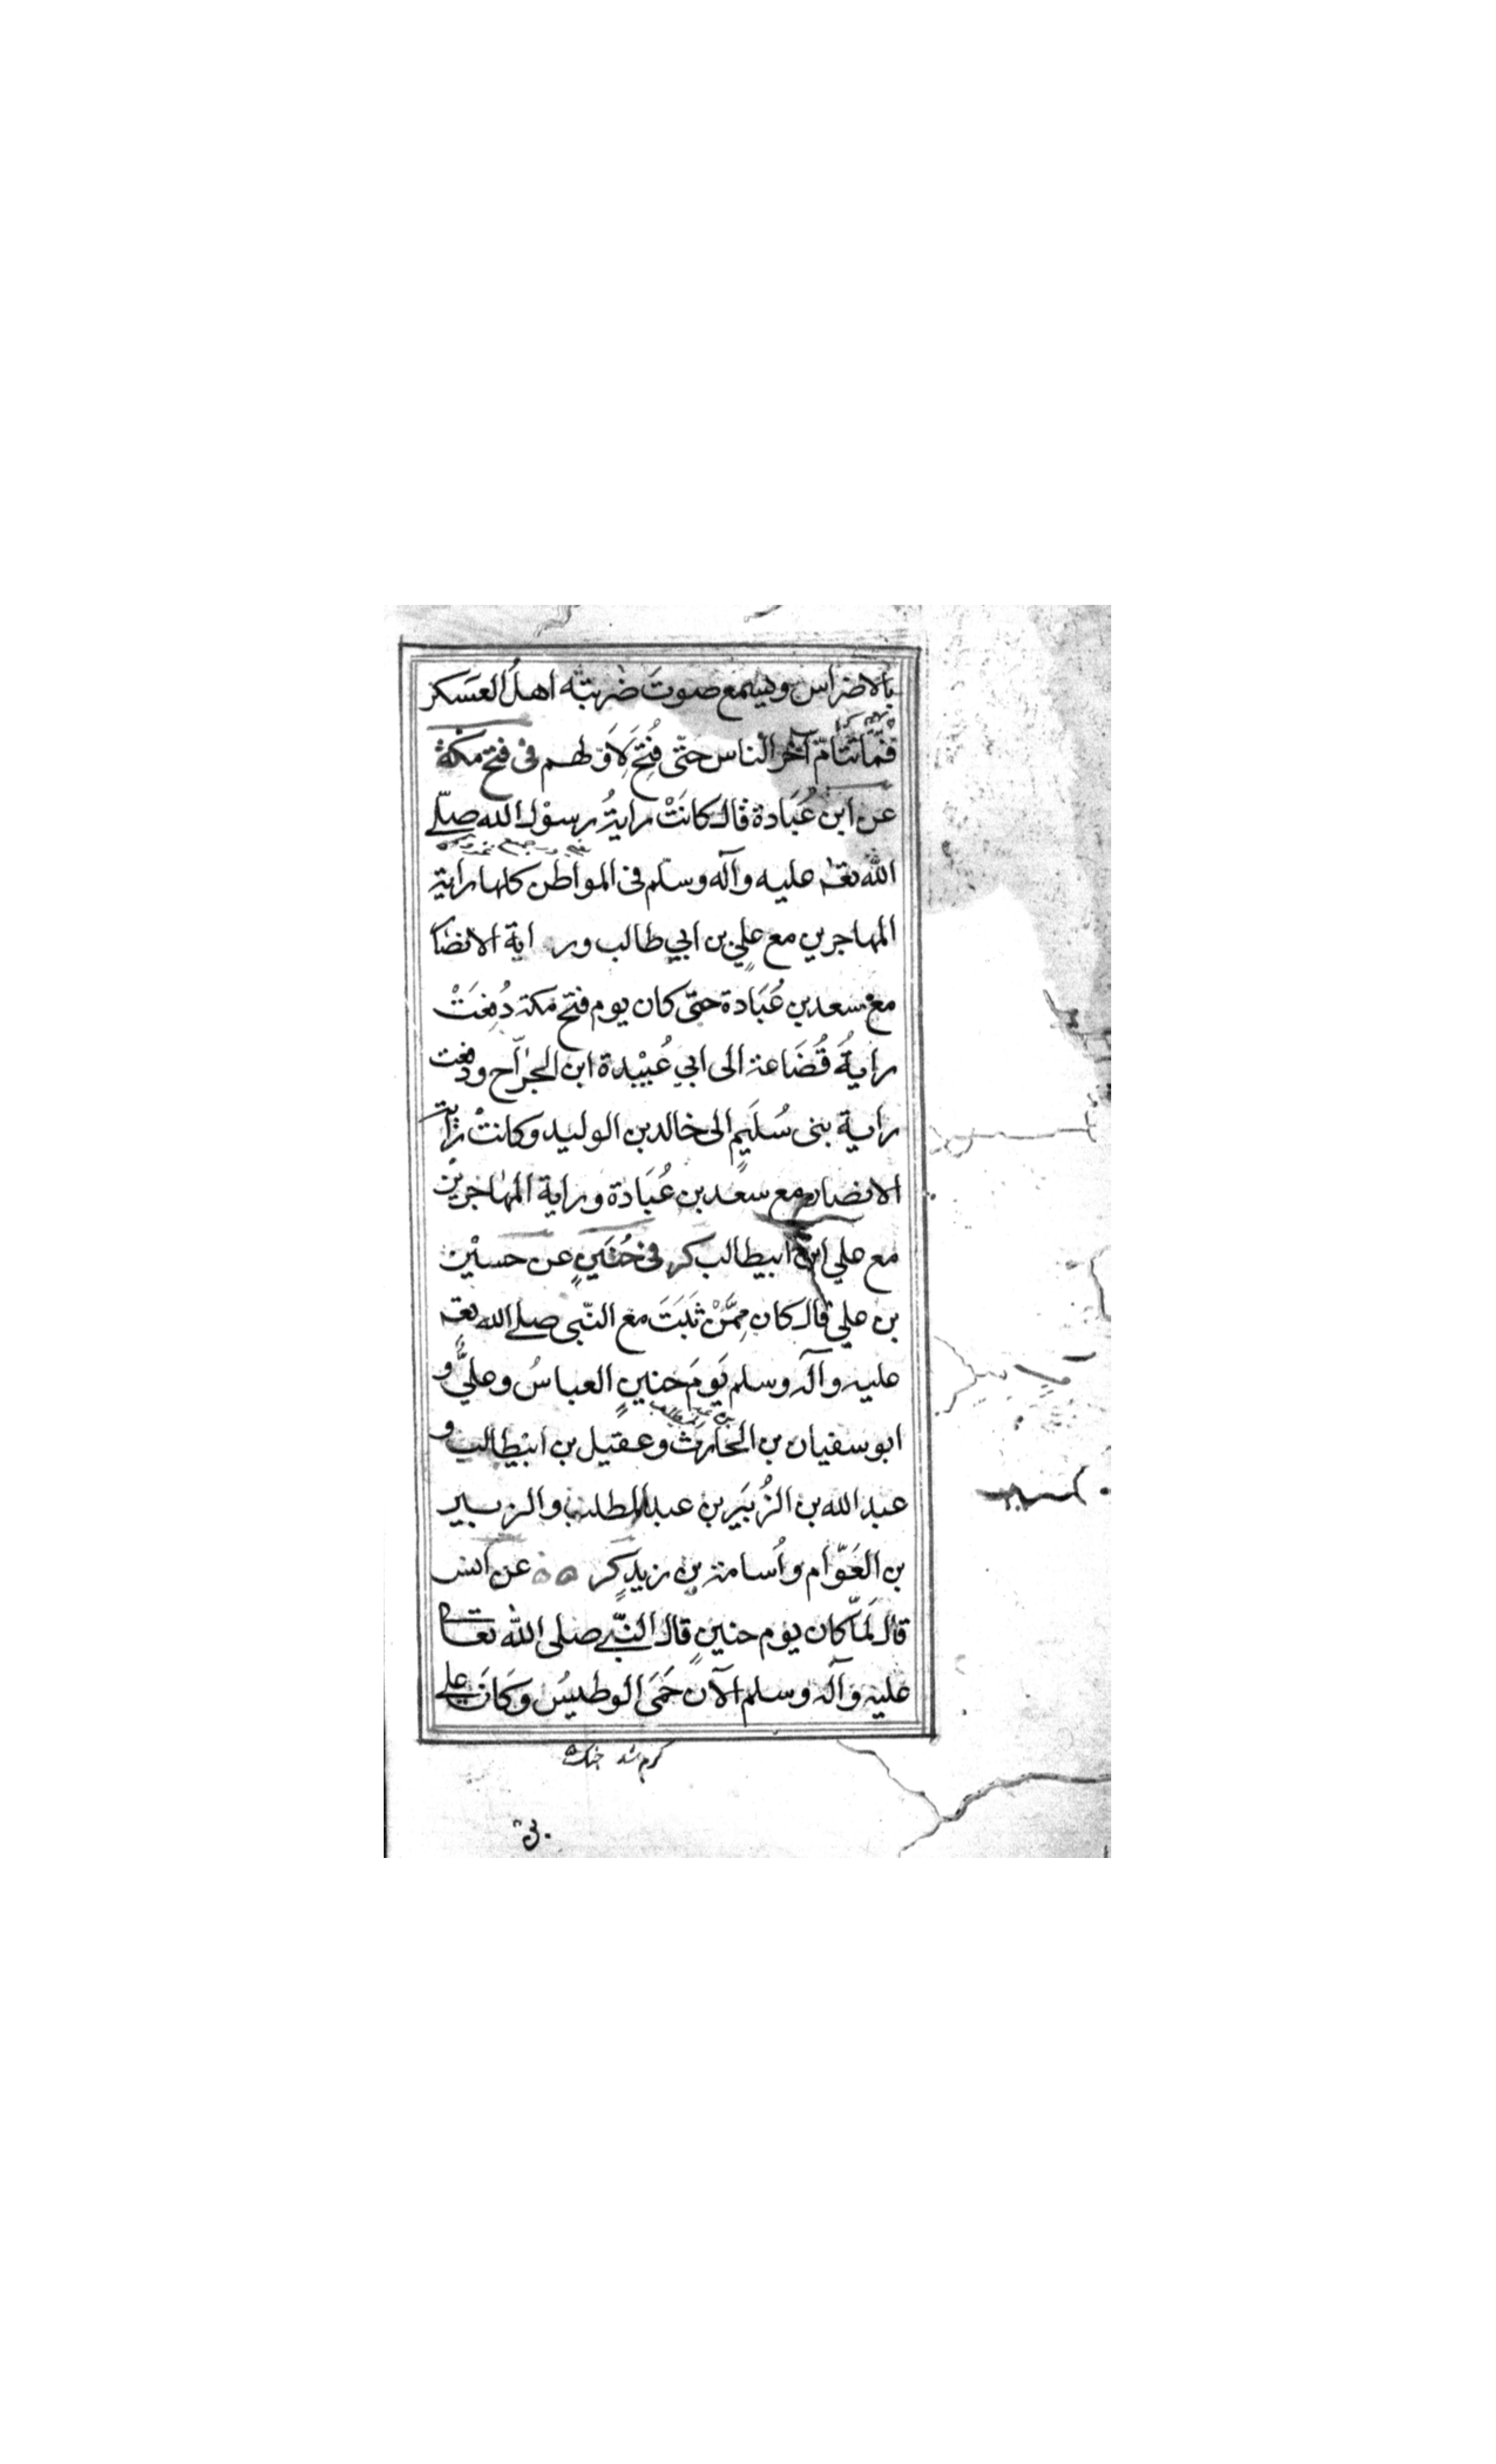 بالاضراس ويسمع صوتَ ضربته اهلُ العسكر
فمَا تتَامّ آخر الناس حتّى فُتِحَ لِاَوّلهم فى فتح مكة
عن ابن عُبَادة قال كانَتْ رايةُ رسول الله صلّے
الله تعہ عليه وآله وسلم فى المواطن كلها راية
المهاجرين مع علي بن ابي طالب ور اية الانصا
مع سعد بن عُبَادة حتّى كان يوم فتح مكة دُفِعَتْ
رايةُ قُضَاعة الى ابي عُبيْدة ابن الجرّاح ودفعت
راية بنى سُلَيمٍ الى خالد بن الوليد وكانتْ راية
الانصار مع سعد بن عُبَادة وراية المهاجرين
مع علي ابن ابيطالب كر فى حُنَينٍ عن حسيْن
بن علي قال كان مِمَّنْ ثَبَتَ مع النّبى صلے الله تعہ
عليه وآله وسلم يَومَ حنينٍ العباسُ وعليٌّ و
ابو سفيان بن الحارث وعقيل بن ابيطالب و
عبد الله بن الزُبَيرِ بن عبد المطلب والزبير
بن العَوّام واُسامة بن زيدٍ كر ه ه عن انس
قال لَمّا كان يوم حنينٍ قال النّبے صلى الله تعالے
عليه وآله وسلم الآن حَمَى الوطيسُ وكَانَ علے
گرم شد جنگ